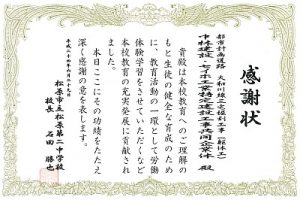 感謝状
都市計画道路 大和川線三宅掘割工事(躯体工)
中林建設・七ツ木工業特定建設工事共同企業体 殿
貴殿は本校教育へのご理解の
もと生徒の健全な育成のため
に、教育活動の一環として労働
体験学習をさせていただくなど
本校教育の充実発展に貢献され
ました。
本日ここにその功績をたたえ
深く感謝の意を表します。
平成二十四年六月十九日
松原市立松原第二中学校
校長 石田 勝也